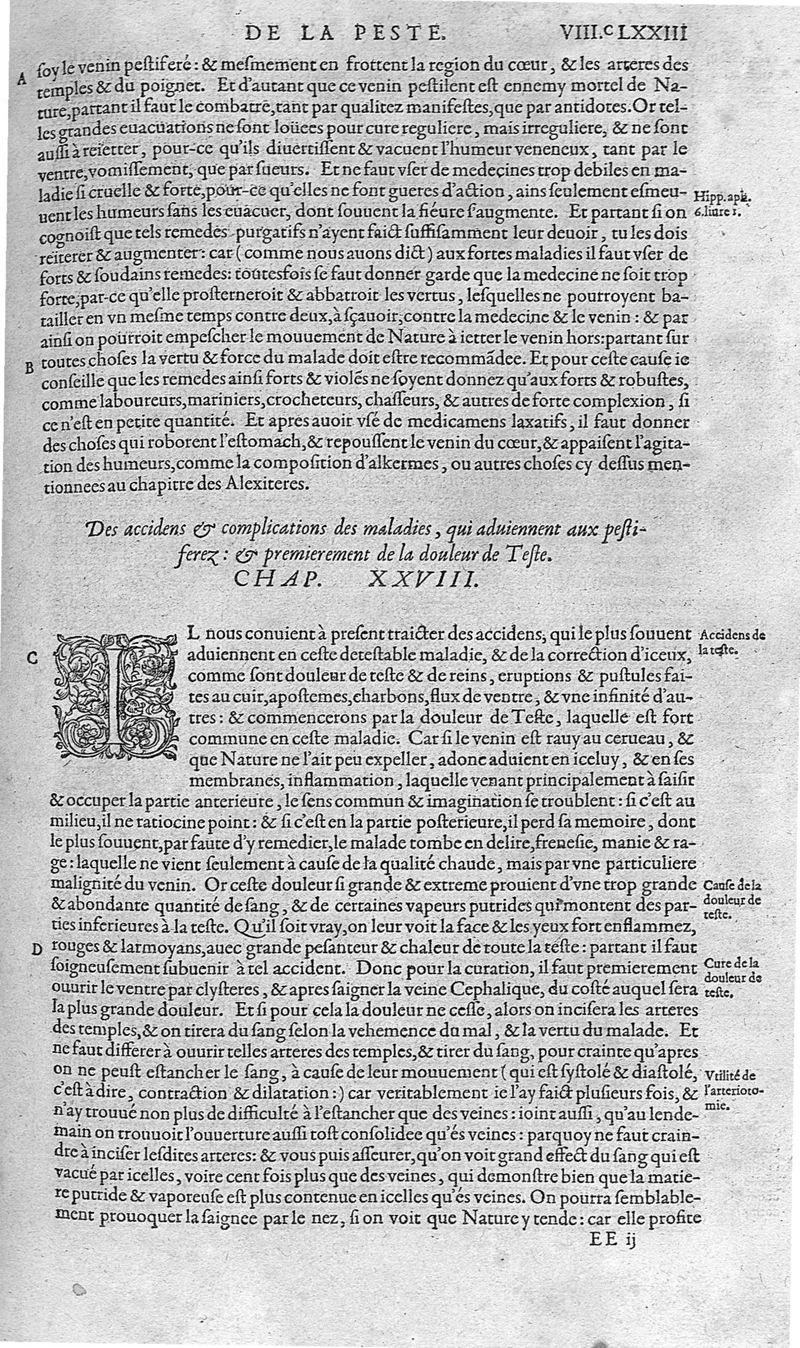 DE LA PESTE. VIII.CLXXIII
A
ſoy le venin peſtiferé: & meſmement en frottent la region du cœur, & les arteres des
temples & du poignet. Et d'autant que ce venin peſtilent eſt ennemy mortel de Na-
ture, partant il faut le combatre, tant par qualitez manifeſtes, que par antidotes. Or tel-
les grandes euacuations ne ſont loüees pour cure reguliere, mais irreguliere, & ne ſont
auſſi à reietter, pour-ce qu'ils diuertiſſent & vacuent l'humeur veneneux, tant par le
ventre, vomiſſement, que par ſueurs. Et ne faut vſer de medecines trop debiles en ma-
ladie ſi cruelle & forte, pour-ce qu'elles ne font gueres d'action, ains ſeulement eſmeu-
uent les humeurs ſans les euacuer, dont ſouuent la fiéure s'augmente. Et partant ſi on
Hipp. aph.
6. liure 1.
cognoiſt que tels remedes purgatifs n'ayent faict ſuffiſamment leur deuoir, tu les dois
reïterer & augmenter: car (comme nous auons dict) aux fortes maladies il faut vſer de
forts & ſoudains remedes: toutesfois ſe faut donner garde que la medecine ne ſoit trop
forte, par-ce qu'elle proſterneroit & abbatroit les vertus, leſquelles ne pourroyent ba-
tailler en vn meſme temps contre deux, à ſçauoir, contre la medecine & le venin: & par
ainſi on pourroit empeſcher le mouuement de Nature à ietter le venin hors: partant ſur
B
toutes choſes la vertu & force du malade doit eſtre recommãdee. Et pour ceſte cauſe ie
conſeille que les remedes ainſi forts & violés ne ſoyent donnez qu'aux forts & robuſtes,
comme laboureurs, mariniers, crocheteurs, chaſſeurs, & autres de forte complexion, ſi
ce n'eſt en petite quantité. Et apres auoir vſé de medicamens laxatifs, il faut donner
des choſes qui roborent l'eſtomach, & repouſſent le venin du cœur, & appaiſent l'agita-
tion des humeurs, comme la compoſition d'alkermes, ou autres choſes cy deſſus men-
tionnees au chapitre des Alexiteres.
Des accidens & complications des maladies, qui aduiennent aux peſti-
ferez: & premierement de la douleur de Teſte.
CHAP. XXVIII.
IL nous conuient à preſent traicter des accidens, qui le plus ſouuent
Accidens de
la teſte.
C
aduiennent en ceſte deteſtable maladie, & de la correction d'iceux,
comme ſont douleur de teſte & de reins, eruptions & puſtules fai-
tes au cuir, apoſtemes, charbons, flux de ventre, & vne infinité d'au-
tres: & commencerons par la douleur de Teſte, laquelle eſt fort
commune en ceſte maladie. Car ſi le venin eſt rauy au cerueau, &
que Nature ne l'ait peu expeller, adonc aduient en iceluy, & en ſes
membranes, inflammation, laquelle venant principalement à ſaiſir
& occuper la partie anterieure, le ſens commun & imagination ſe troublent: ſi c'eſt au
milieu, il ne ratiocine point: & ſi c'eſt en la partie poſterieure, il perd ſa memoire, dont
le plus ſouuent, par faute d'y remedier, le malade tombe en delire, freneſie, manie & ra-
ge: laquelle ne vient ſeulement à cauſe de la qualité chaude, mais par vne particuliere
malignité du venin. Or ceſte douleur ſi grande & extreme prouient d'vne trop grande
Cauſe de la
douleur de
teſte.
& abondante quantité de ſang, & de certaines vapeurs putrides qui montent des par-
ties inferieures à la teſte. Qu'il ſoit vray, on leur voit la face & les yeux fort enflammez,
D
rouges & larmoyans, auec grande peſanteur & chaleur de toute la teſte: partant il faut
ſoigneuſement ſubuenir à tel accident. Donc pour la curation, il faut premierement
Cure de la
douleur de
teſte.
ouurir le ventre par clyſteres, & apres ſaigner la veine Cephalique, du coſté auquel ſera
la plus grande douleur. Et ſi pour cela la douleur ne ceſſe, alors on inciſera les arteres
des temples, & on tirera du ſang ſelon la vehemence du mal, & la vertu du malade. Et
ne faut differer à ouurir telles arteres des temples, & tirer du ſang, pour crainte qu'apres
on ne peuſt eſtancher le ſang, à cauſe de leur mouuement (qui eſt ſyſtolé & diaſtolé,
Vtilité de
l'arterioto-
mie.
c'eſt à dire, contraction & dilatation:) car veritablement ie l'ay faict pluſieurs fois, &
n'ay trouué non plus de difficulté à l'eſtancher que des veines: ioint auſſi, qu'au lende-
main on trouuoit l'ouuerture auſſi toſt conſolidee qu'és veines: parquoy ne faut crain-
dre à inciſer leſdites arteres: & vous puis aſſeurer, qu'on voit grand effect du ſang qui eſt
vacué par icelles, voire cent fois plus que des veines, qui demonſtre bien que la matie-
re putride & vaporeuſe eſt plus contenue en icelles qu'és veines. On pourra ſemblable-
ment prouoquer la ſaignee par le nez, ſi on voit que Nature y tende: car elle profite
EE ij